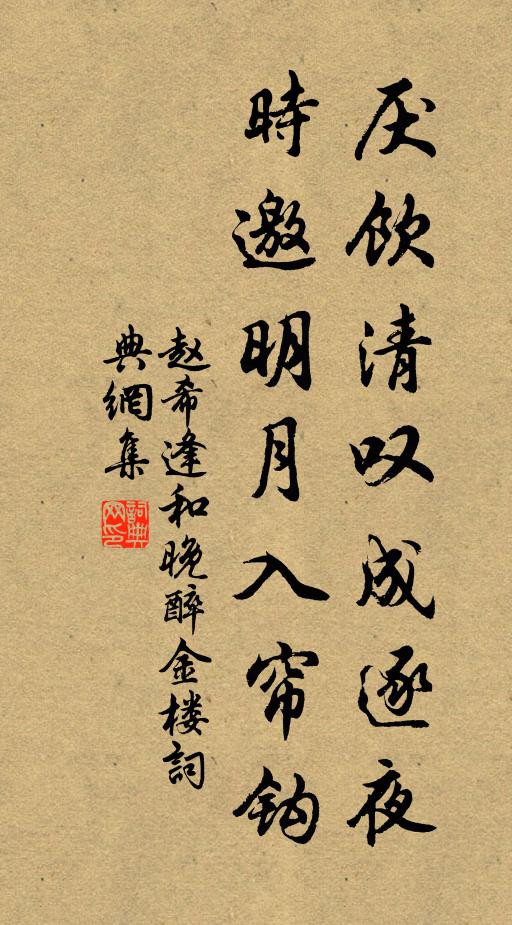 厌饮清叹成逐夜
时邀明月入帘钩
赵希逢和晚醉金楼詞
典網集
詞典網印